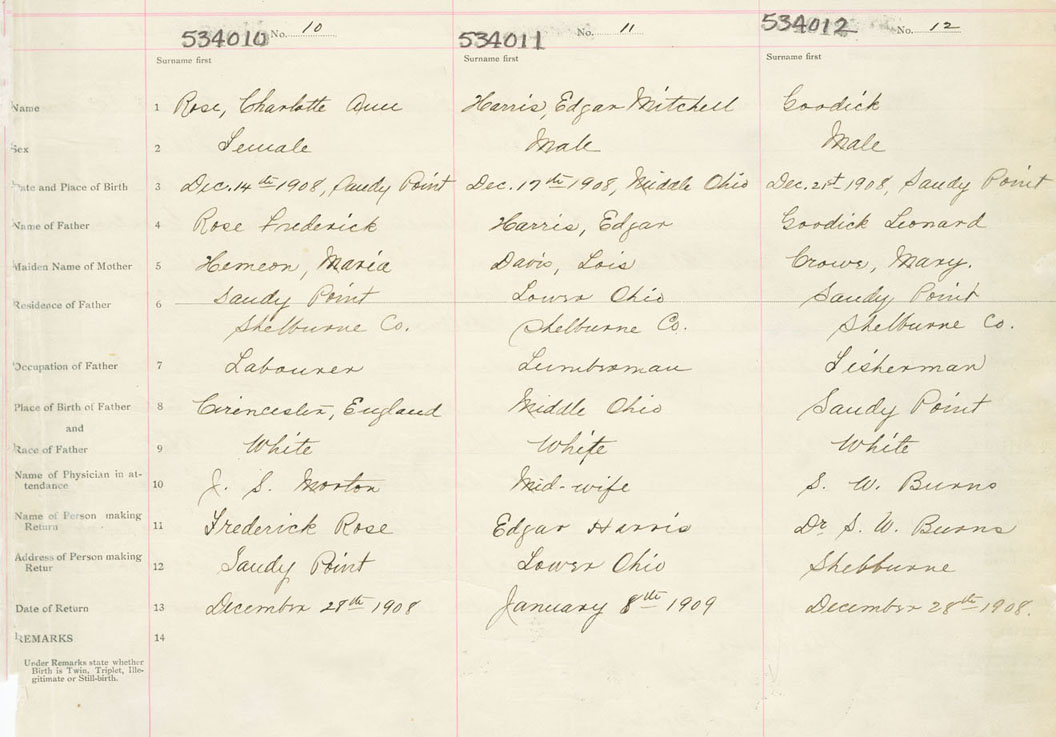 534010 No. 10 534011 No. 11 534012 No. 12
Surname first Surname first Surname first
Name 1 Rose, Charlotte Ann Harris, Edgar Mitchell Goodick
Sex 2 Female Male Male
Date and Place of Birth 3 Dec. 14th 1908, Sandy Point Dec. 17th 1908, Middle Ohio Dec. 21st 1908, Sandy Point
Name of Father 4 Rose Frederick Harris, Edgar Goodick Leonard
Maiden Name of Mother 5 Hemeon, Maria Davis, Lois Crowe, Mary.
Residence of Father 6 Sandy Point Lower Ohio Sandy Point
Shelburne Co. Shelburne Co. Shelburne Co.
Occupation of Father 7 Labourer Lumberman Fisherman
Place of Birth of Father 8 Cirencester, England Middle Ohio Sandy Point
and
Race of Father 9 White White White
Name of Physician in at-
tendance 10 J. S. Morton Mid-wife S. W. Burns
Name of Person making
Return 11 Frederick Rose Edgar Harris Dr S. W. Burns
Address of Person making
Retur 12 Sandy Point Lower Ohio Shelburne
Date of Return 13 December 28th 1908 January 8th 1909 December 28th 1908.
REMARKS 14
Under Remarks state whether
Birth is Twin, Triplet, Ille-
gitimate or Still-birth.